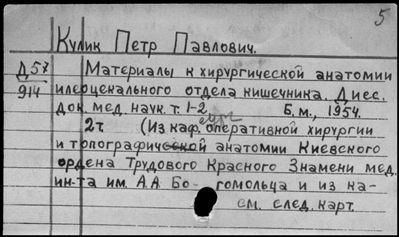 5
Кулик Петр Павлович.
Д57 Материалы к хирургической анатомии
914 илеоцекального отдела кишечника. Дисс.
док. мед. наук. т. 1-2 Б.м., 1954.
2т. (Из каф. оперативной хирургии
и топографической анатомии Киевского
ордена Трудового Красного Знамени мед.
ин-та им. А.А. Бо- гомольца и из ка-
см. след. карт.